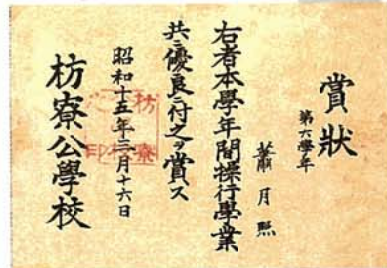 賞狀
第六學年
蕭月照
右者本學年間操行學業
共ニ優良ニ付之ヲ賞ス
昭和十五年三月十六日
枋寮公學校